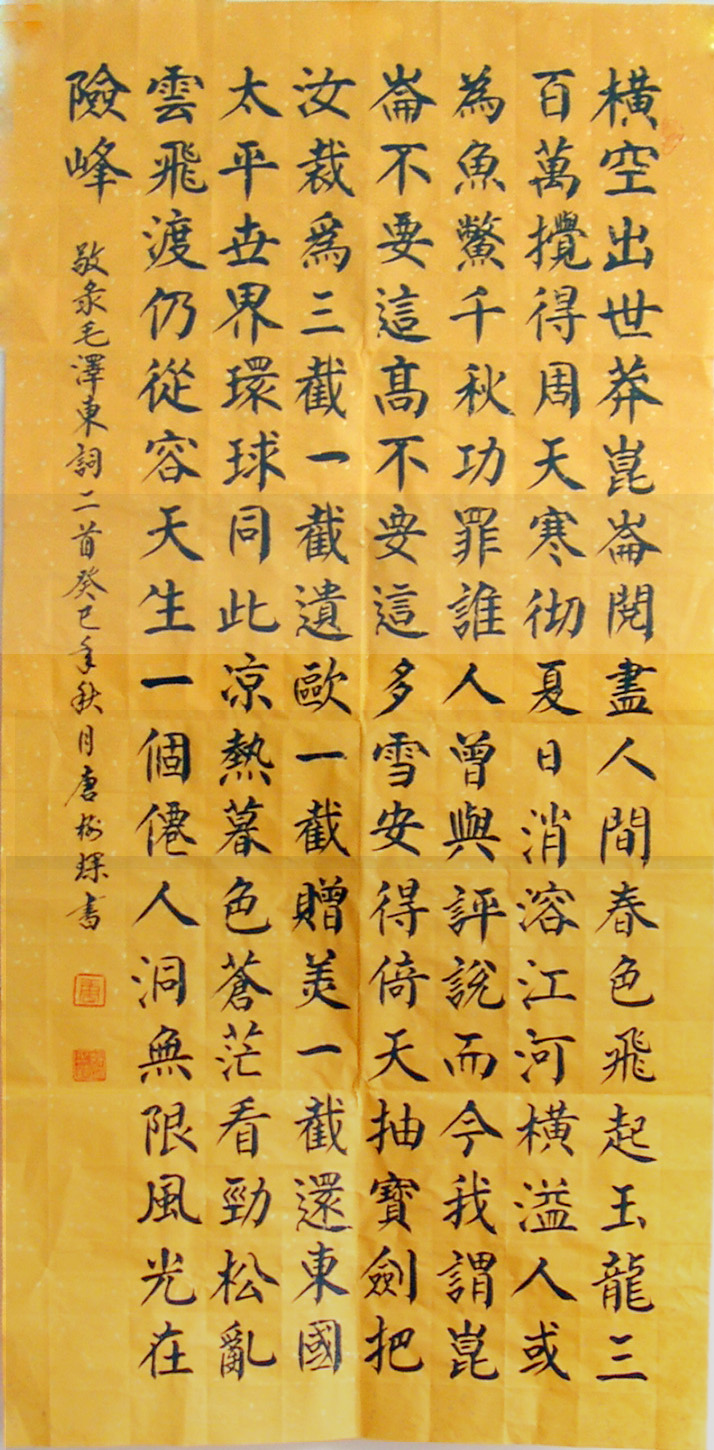 橫空出世莽崑崙閱盡人間春色飛起玉龍三
百萬攪得周天寒彻夏日消溶江河橫溢人或
為魚鱉千秋功罪誰人曾與評說而今我謂崑
崙不要這髙不要這多雪安得倚天抽寶劍把
汝裁爲三截一截遺歐一截贈美一截還東國
太平世界環球同此凉熱暮色蒼茫看勁松亂
雲飛渡仍從容天生一個僊人洞無限風光在
險峰
敬彔毛澤東詞二首癸巳年秋月唐樹書